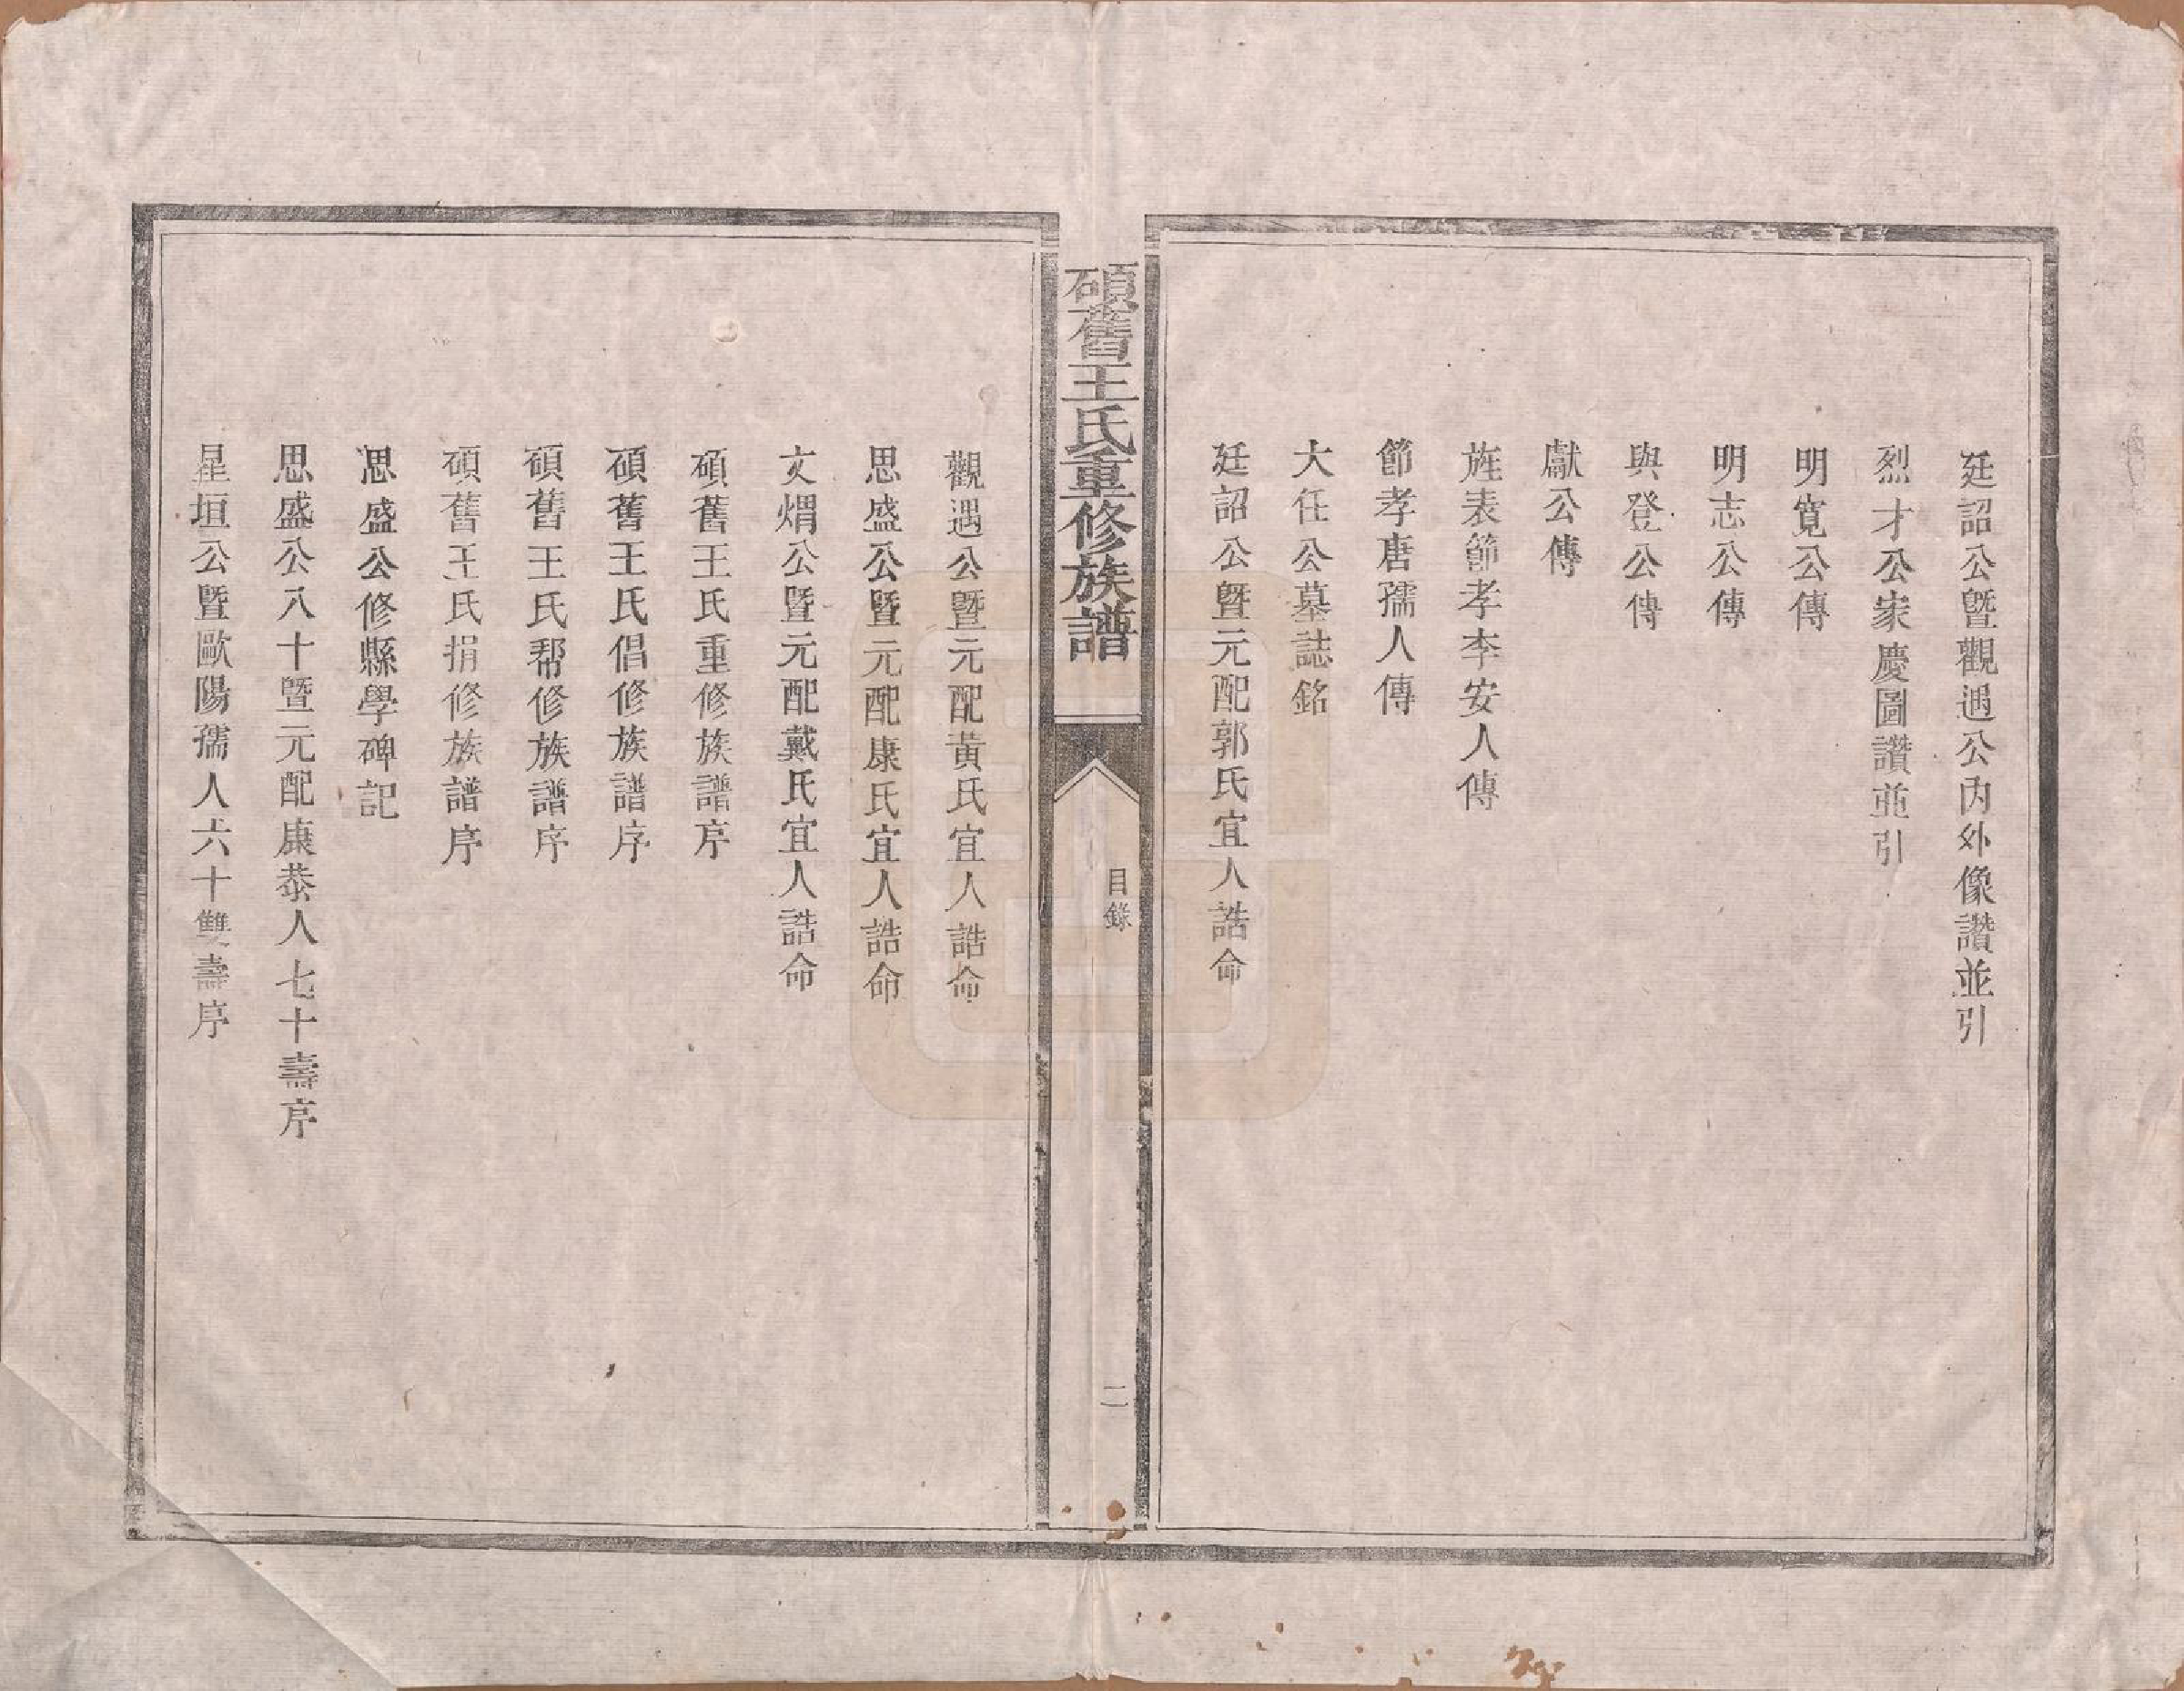 廷詔公暨觀遇公內外像讚並引
烈才公家慶圖讚並引
明寬公傳
明志公傳
與登公傳
獻公傳
旌表節孝李安人傳
節孝唐孺人傳
大任公墓誌銘
廷詔公暨元配郭氏宜人誥命
碩舊王氏重修族譜
目錄
二
觀遇公暨元配黃氏宜人誥命
思盛公暨元配康氏宜人誥命
文煟公暨元配戴氏宜人誥命
碩舊王氏重修族譜序
碩舊王氏倡修族譜序
碩舊王氏帮修族譜序
碩舊王氏捐修族譜序
思盛公修縣學碑記
思盛公八十暨元配康恭人七十壽序
星垣公暨歐陽孺人六十雙壽序